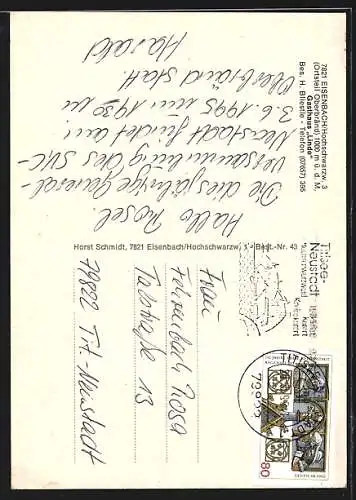 7821 EISENBACH/Hochschwarzw. 3
(Ortsteil Oberbränd) 1000 m ü. d. M.
Gasthaus „Linde"
Bes. H. Bliestle - Telefon (07657) 395
Hallo Rosel.
Die diesjährige General-
versammlung des SVC-
Neustadt findet am
3.6.1995 um 19³⁰ in
Oberbränd statt.
Harald
Horst Schmidt, 7821 Eisenbach/Hochschwarzw. 1 - Best.-Nr. 43
Titisee-
Neustadt
Frau
Fehrenbach Rosa
Talstraße 13
79822 Tit.-Neustadt
80